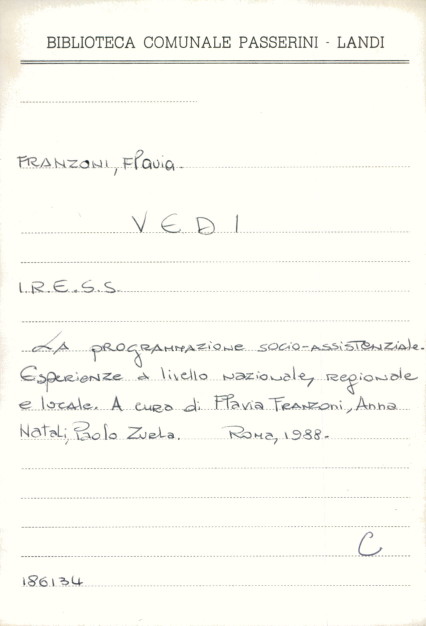 BIBLIOTECA COMUNALE PASSERINI - LANDI
FRANZONI, Flavia.
VEDI
I.R.E.S.S.
LA PROGRAMMAZIONE SOCIO-ASSISTENZIALE.
Esperienze a livello nazionale, regionale
e locale. A cura di Flavia Franzoni, Anna
Natali, Paolo Zurla. Roma, 1988.
C
186134